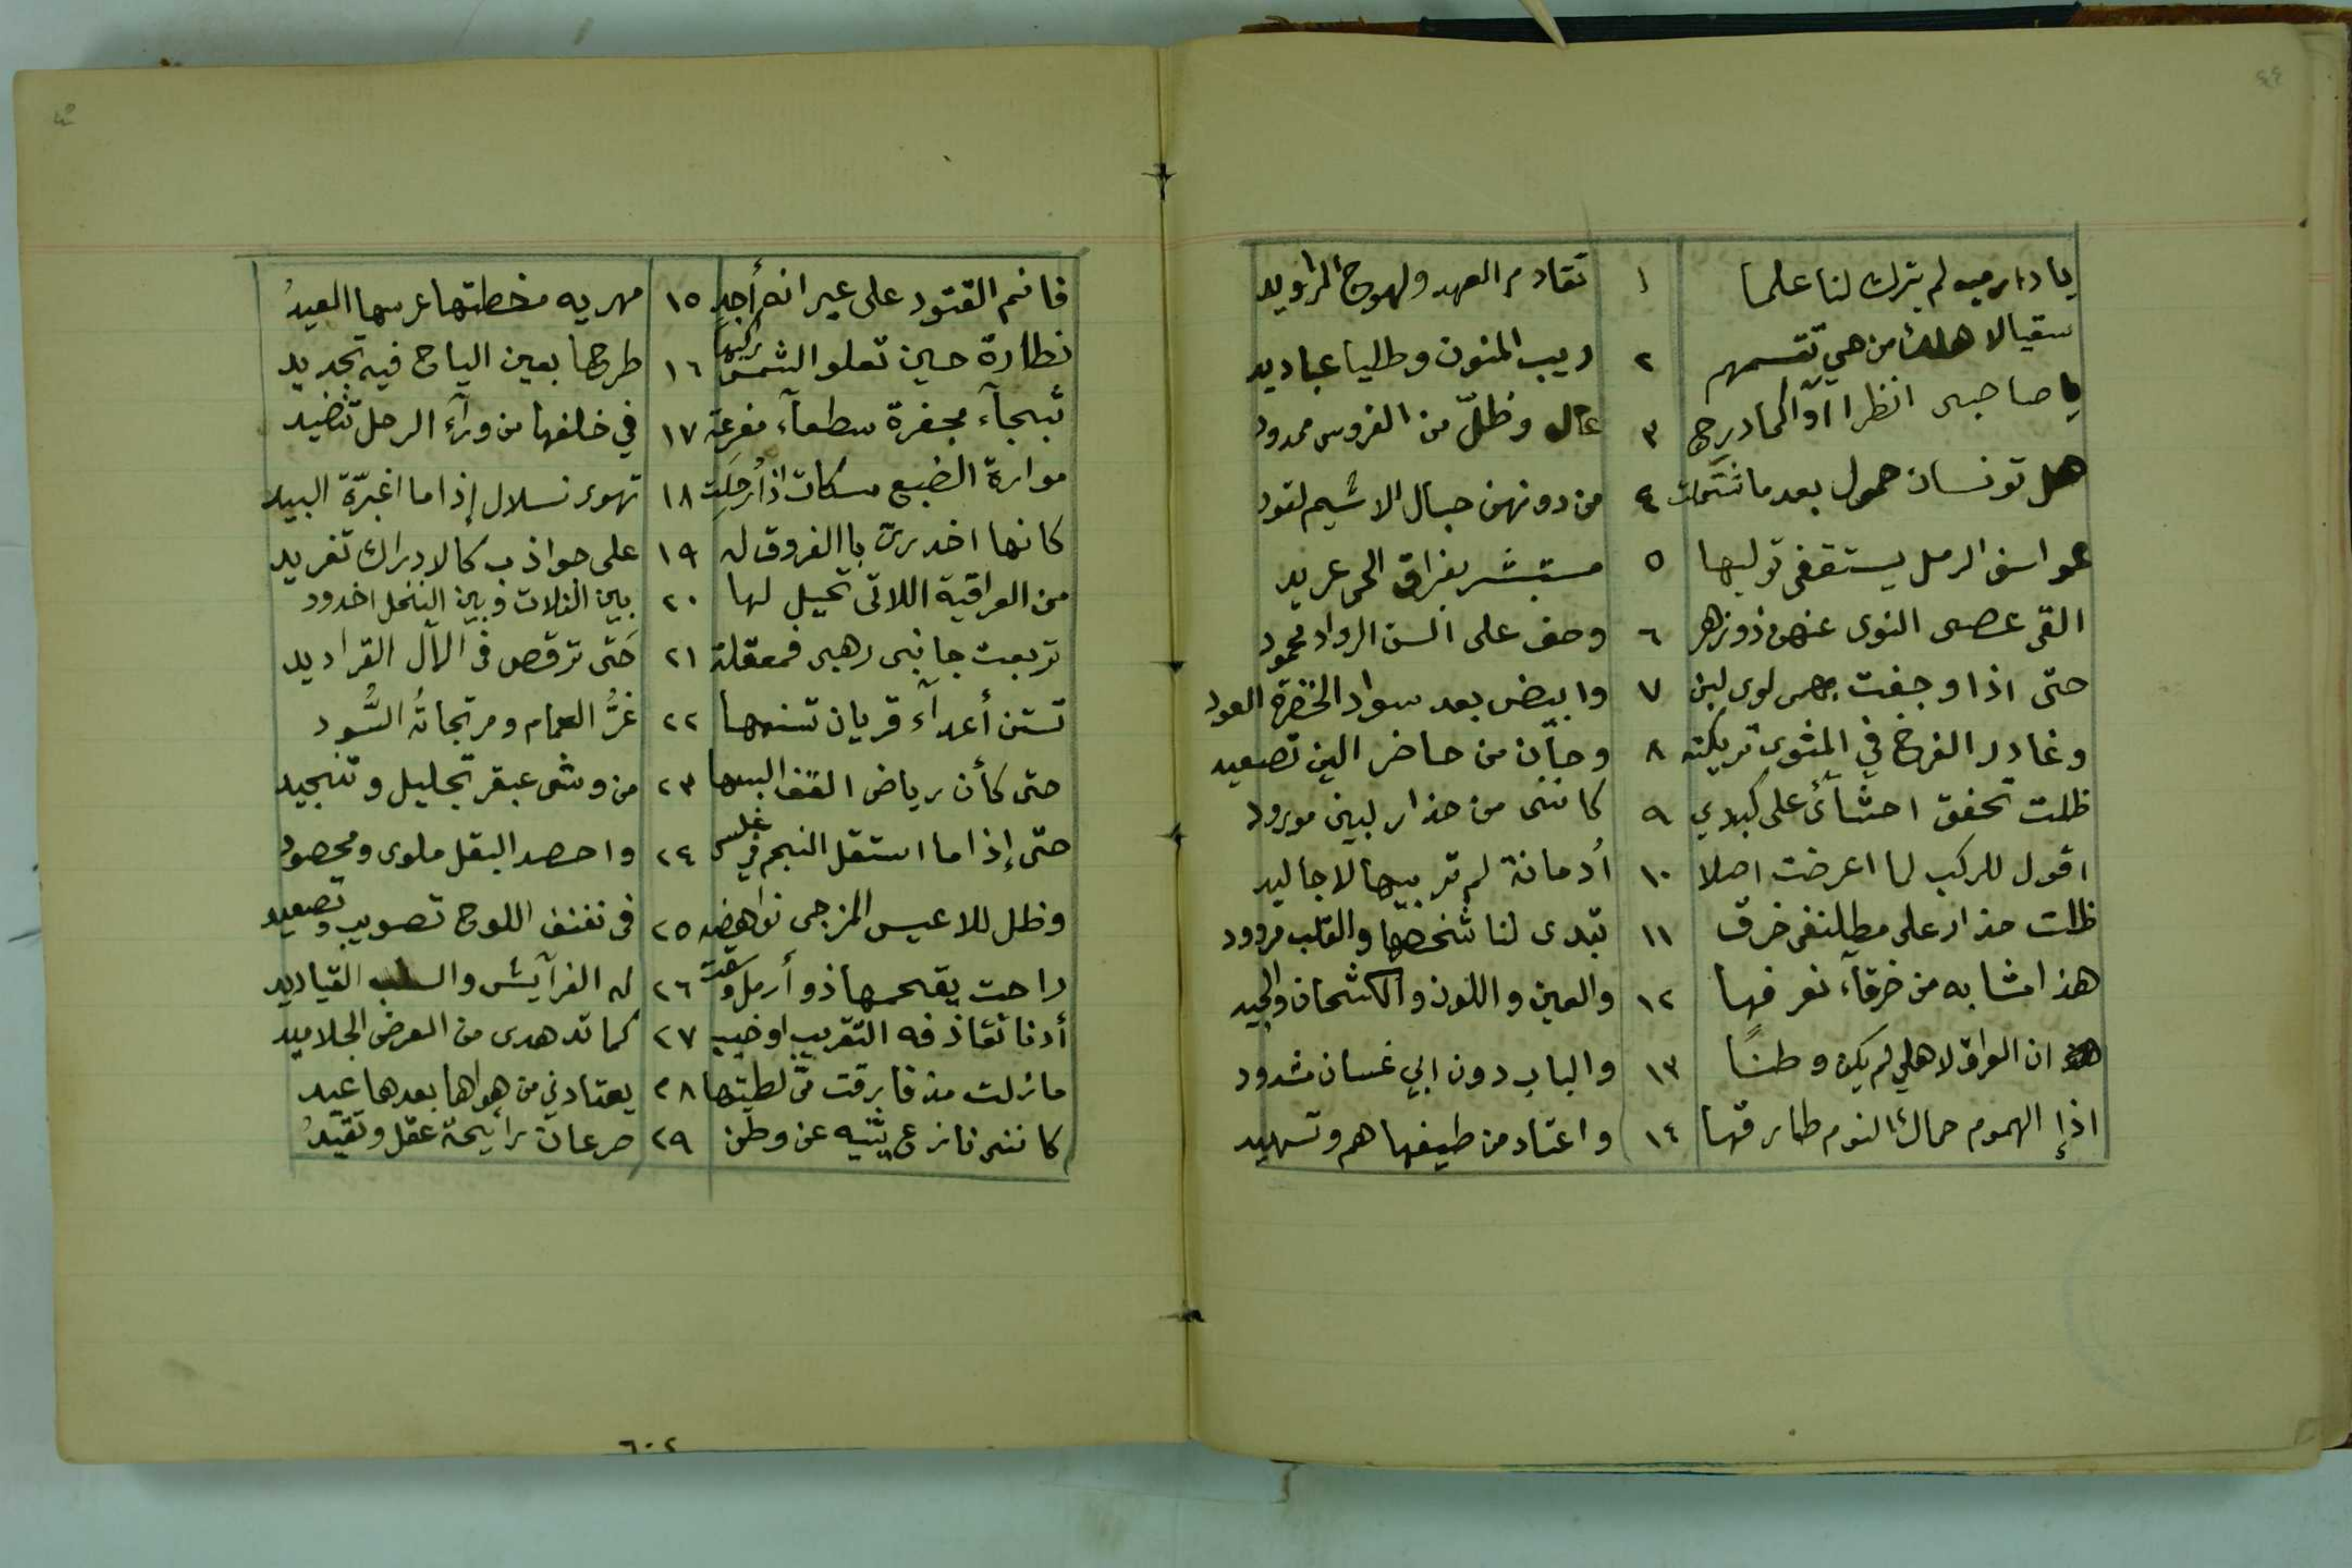 ٤٤
يا دار مية لم يترك لنا علما ١ تقادم العهد ولهوج المراويد
سقيا لاهلك من حي تقسمهم ٢ ريب المنون وطليا عباديد
يا صاحبى انظرا اوّاكما درج ٣ عال وظلّ من الفروس ممدود
هل تونسان حمول بعد ما شتملت ٤ من دونهن حبال الاشيم لقود
عواسف الرمل يستقفى توليها ٥ مستبشر بفراق الحى غريد
القى عصى النوى عنهن ذو زهر ٦ وحف على السن الرواد محمود
حتى اذا وجفت بهمى لوى لبن ٧ وابيض بعد سواد الخضرة العود
وغادر الفرخ في المثوى تريكته ٨ وحان من حاضر الين تصعيد
ظلت تخفق احشآئ على كبدي ٩ كاننى من حذار لبين مورود
اقول للركب لما اعرضت اصلا ١٠ أدمانة لم تربيها لاجاليد
ظلت حذار على مطلنفى خرق ١١ تبدى لنا شخصها والقلب مزوود
هذا مشابه من خرقآء نعرفها ١٢ والعين واللون والكشحان والجيد
ان العراق لاهلي لم يكن وطنًا ١٣ والباب دون ابي غسان مشدود
اذإ الهموم حماك النوم طارقها ١٤ واعتاد من طيفها هم وتسهيد
فانم القتود على عيرانة أجدٍ ١٥ مهريه مخطتها غرسها العيدُ
نظارة حين تعلو الشمس ركبها ١٦ طرحا بعين الياح فيه تجديد
ثبجآء مجفرة سطعآء مفرعة ١٧ في خلفها من ورآء الرحل تنضيد
موارة الضبع مسكات اذا رحلت ١٨ تهوى نسلال إذاما اغبرّة البيد
كانها اخدرىّ باالفروق له ١٩ على حواذب كالادراك تغريد
من العراقية اللاتى تحيل لها ٢٠ بين الفلات وبين النخل اخدود
تربعت جانبى رهبى فمعقلة ٢١ حَتى ترقص فى الال القراديد
تستن أعدآء قريان تسنمها ٢٢ غرُّ الغمام ومرتجاتُه السُّود
حتى كأن رياض القف البسها ٢٣ من وشى عبقر تجليل وتنجيد
حتى إذاما استقل النجم في غلس ٢٤ واحصد البقل ملوى ومحصود
وظل للاعيس المزجى نواهضه ٢٥ فى نفنف اللوح تصويب وتصعيد
راحت يقحمها ذو أرمل وسقت ٢٦ له الفرآيش والسلب القياديد
أدنا تقاذفه التقريب او خبب ٢٧ كما تدهدى من العرض الجلاميد
مازلت مذ فارقت مىّ لطيتها ٢٨ يعتادني من هواها بعدها عيد
كاننى نازع يثنيه عن وطن ٢٩ صرعان رايحة عقل وتقييدُ
٦٠٢